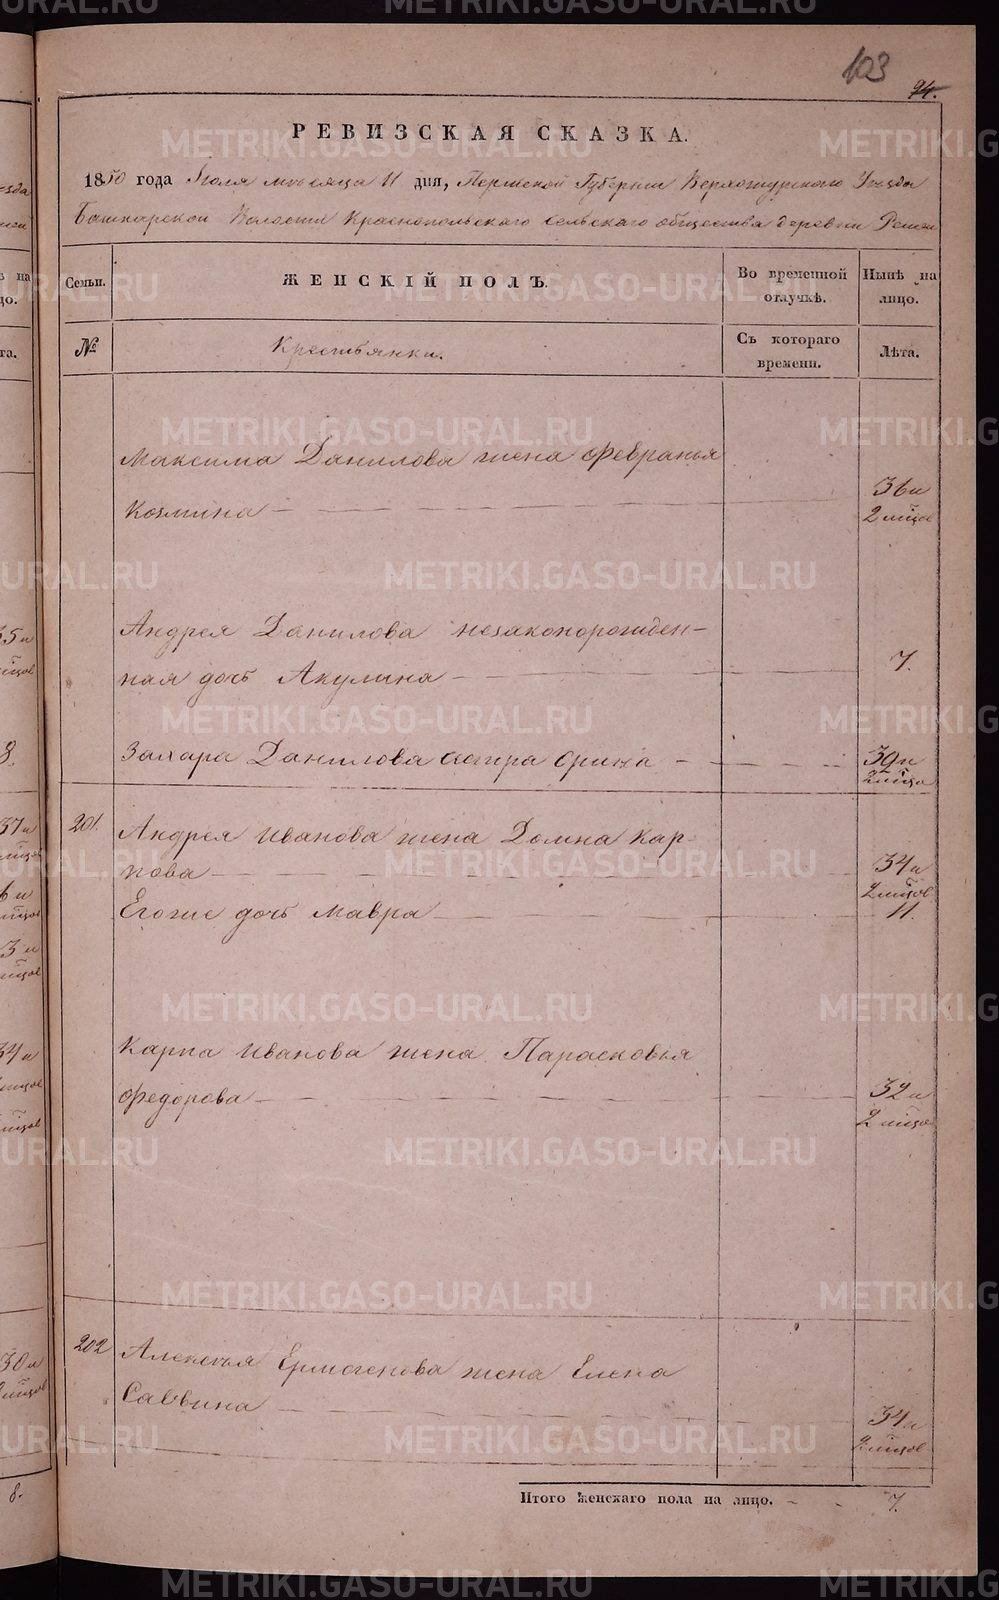 103
94.
РЕВИЗСКАЯ СКАЗКА.
1850 года Іюля мѣсяца 11 дня, Пермской Губерніи Верхотурскаго Уѣзда
Башкарской Волости Краснопольскаго сельскаго общества деревни
Семьи.
ЖЕНСКІЙ ПОЛЪ.
Во временной отлучкѣ.
Нынѣ на лицо.
№
Крестьянки.
Съ котораго времени.
Лѣта.
Максима Данилова жена Февранья
Козмина 36 и
2 мѣсяц
Андрея Данилова незаконорожден-
ная дочь Акулина 7.
Захара Данилова сестра Орина 39 и
2 мѣсяц
201. Андрея Иванова жена Домна Кар-
пова 34 и
2 мѣсяц
Егоже дочь Мавра 11.
Карпа Иванова жена Парасковья
Федорова 32 и
2 мѣсяц
202 Алексѣя Ермогенова жена Елена
Саввина 34 и
2 мѣсяц
Итого женскаго пола на лицо. 7.
METRIKI.GASO-URAL.RU